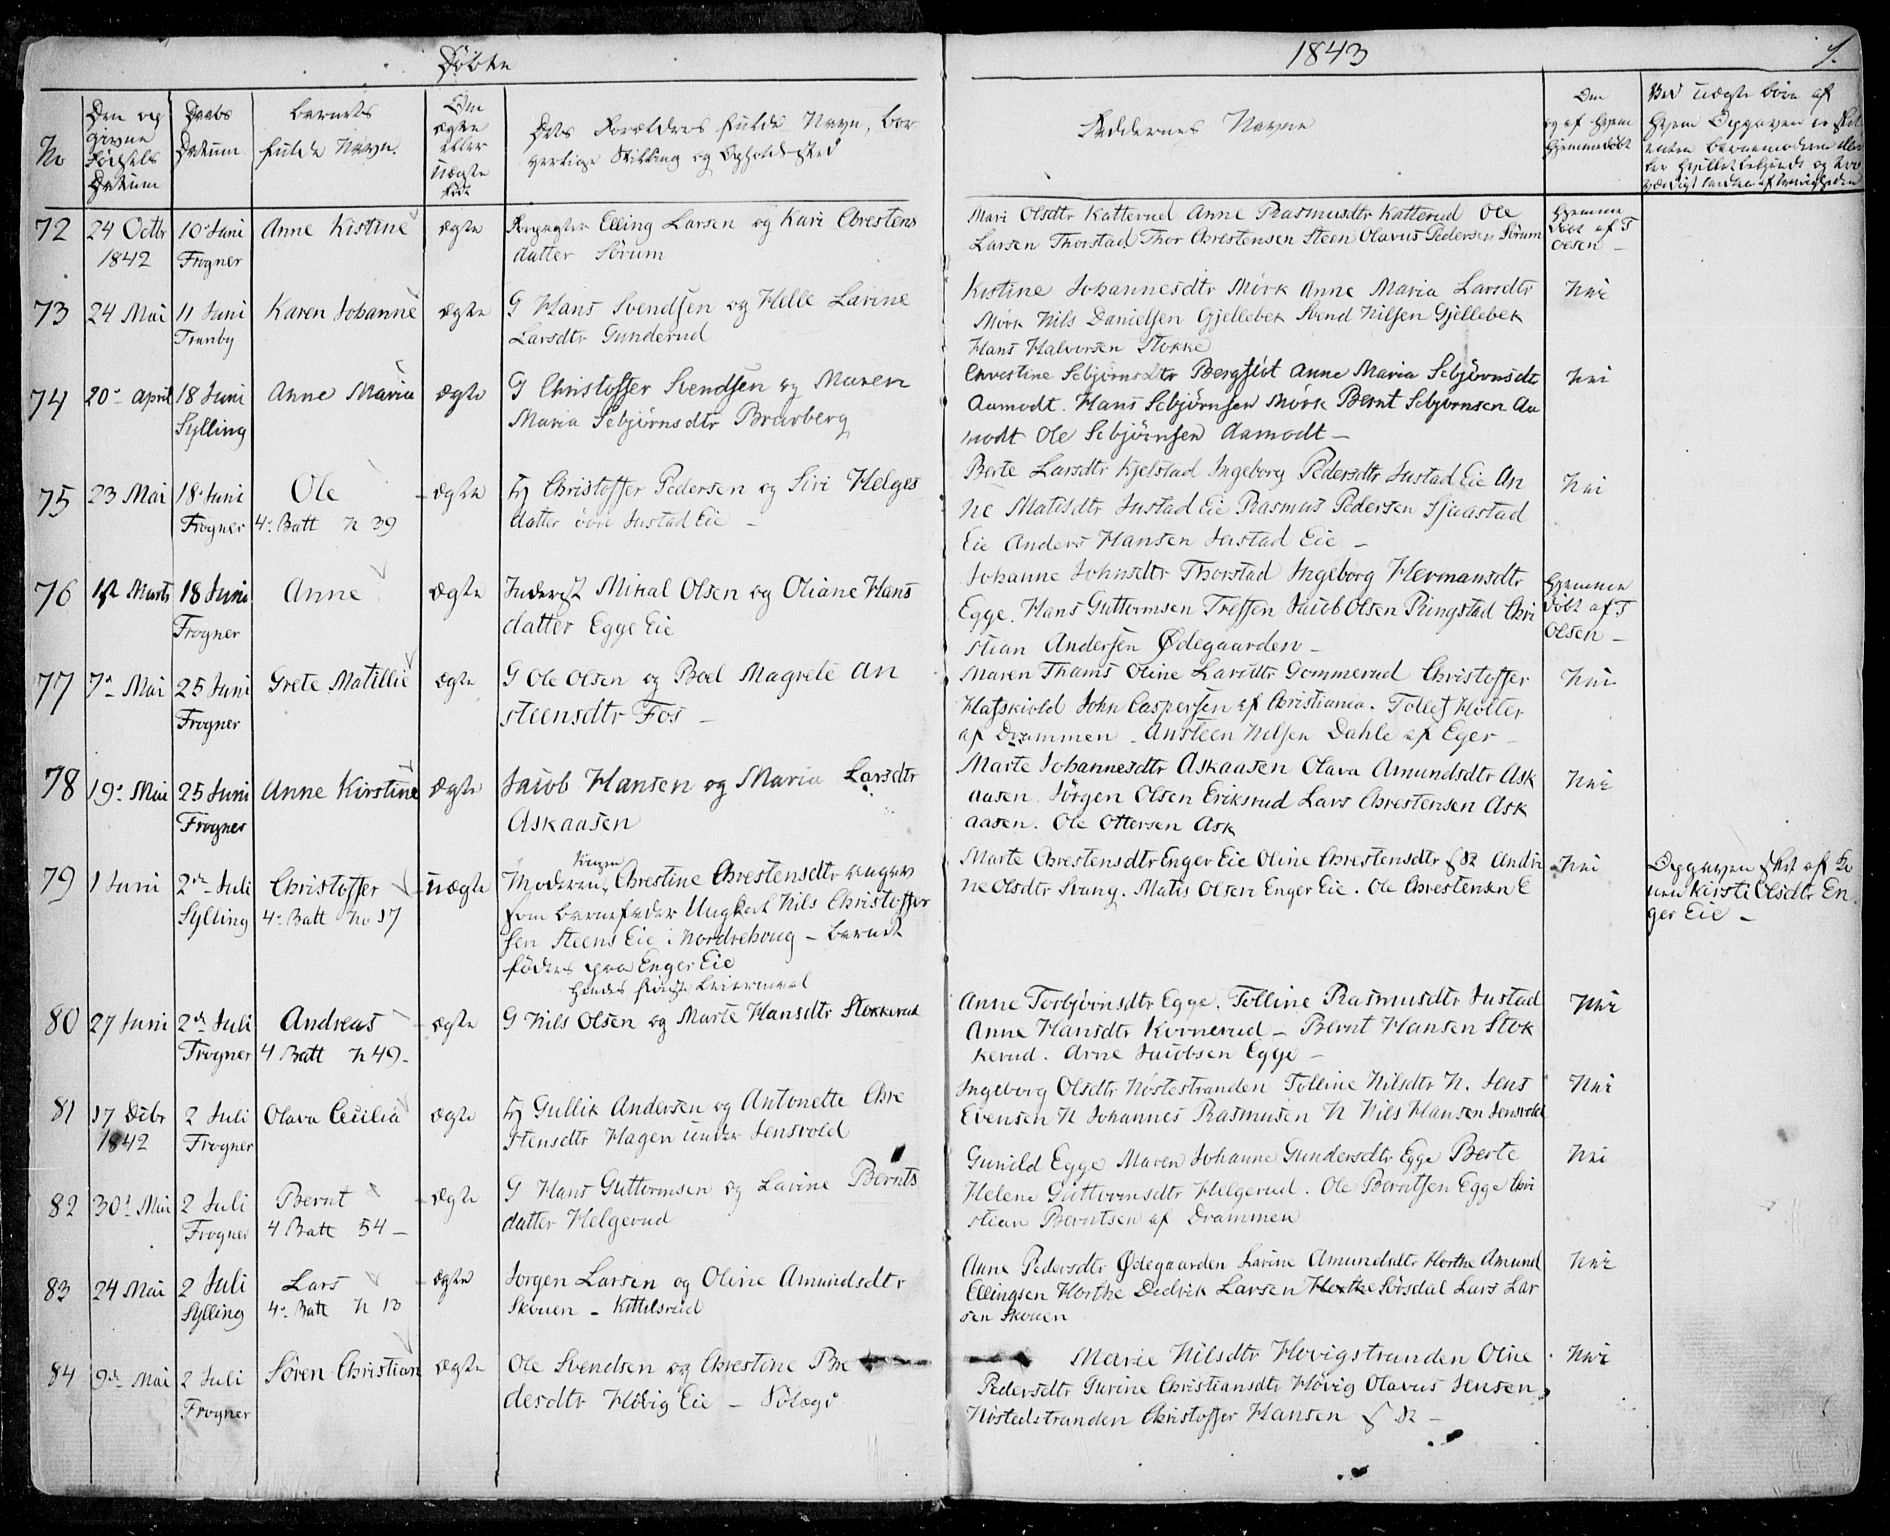 Døbte
1843
No
Den op
givne
Fødsels
Datum
Daabs
Datum
Barnets
fulde Navn.
Om
ægte
eller
Uægte
født
Dets Forældres fulde Navn, bor
gerlige Stilling og Opholdssted
Faddernes Navne
Om
og af hvem
hjemmedøbt
Ved uægte børn af
hvem Opgaven er skeet
72
24 Octbr
1842
10 Juni
Frogner
Anne Kistine
ægte
Forpagter Elling Larsen og Kari Chrestens
datter Sørum
Mari Olsdtr Katterud Anne Rasmusdtr Katterud Ole
Larsen Thorstad Thor Chrestensen Steen Olavus Pedersen Sørum
Hjemme
døbt af T
Olsen –
73
24 Mai
11 Juni
Tranby
Karen Johanne
ægte
G Hans Svendsen og Helle Lavine
Larsdtr Gunderud
Kistine Johannesdtr Mørk Anne Maria Larsdtr
Mørk Nils Danielsen Gjellebek Svend Nilsen Gjellebek
Hans Halvorsen Stokke
Nei
74
20 April
18 Juni
Sylling
Anne Maria
ægte
G Christoffer Svendsen og Maren
Maria Sebjørnsdtr Brarberg
Chrestine Sebjørnsdtr Bergfløt Anne Maria Sebjørnsdt
Aamodt. Hans Sebjørnsen Mørk Bernt Sebjørnsen Aa
modt Ole Sebjørnsen Aamodt –
Nei
75
23 Mai
18 Juni
Frogner
Ole
4. Batt N 39
ægte
Hj Christoffer Pedersen og Siri Helges
datter øvre Justad Eie –
Berte Larsdtr Kjelstad Ingeborg Pedersdtr Justad Eie An
ne Matisdtr Justad Eie Rasmus Pedersen Sjaastad
Eie Anders Hansen Justad Eie –
Nei
76
18 Juni
Frogner
Anne
ægte
Inderst Mikal Olsen og Oliane Hans
datter Egge Eie
Johanne Johnsdtr Thorstad Ingeborg Hermansdtr
Egge. Hans Guttormsen Tressen Jacob Olsen Ringstad Chri
stian Andersen Ødegaarden –
Hjemme
døbt af T
Olsen –
77
7 Mai
25 Juni
Frogner
Grete Matillie
ægte
G Ole Olsen og Boel Magrete An
steensdtr Fos –
Maren Thams Oline Larsdtr Gommerud Christoffer
Hafskiold John Caspersen af Christiania. Tollef Holter
af Drammen – Ansteen Nilsen Dahle af Eger –
Nei
78
19 Mai
25 Juni
Frogner
Anne Kirstine
ægte
Jacob Hansen og Maria Larsdtr
Askaasen
Marte Johannesdtr Askaasen Olava Amundsdtr Ask
aasen. Jørgen Olsen Eriksrud Lars Chrestensen Ask
aasen. Ole Ottersen Ask
Nei
79
1 Juni
2den Juli
Sylling
Christoffer
4. Batt No 17
uægte
Moderen Pigen Chrestine Chrestensdtr angav
som barnefader Ungkarl Nils Christoffer
sen Steens Eie i Nordrehoug – barnet
fødtes paa Enger Eie
hendes første Leiermaal
Marte Chrestensdtr Enger Eie Oline Chrestensdtr Andri
ne Olsdtr Svang. Matis Olsen Enger Eie. Ole Chrestensen E
Nei
Opgaven skeet af
Kirsti Olsdtr En
ger Eie –
80
27 Juni
2den Juli
Frogner
Andreas
4 Batt N 49 –
ægte
G Nils Olsen og Marte Hansdtr Stokkerud
Anne Torbjørnsdtr Egge. Tolline Rasmusdtr Justad
Anne Hansdtr Kovnerud – Bernt Hansen Stok
kerud. Arne Jacobsen Egge –
Nei
81
17 Debr
1842
2 Juli
Frogner
Olava Cecilia
ægte
Hj Gullik Andersen og Antonette Chre
stensdtr Hagen under Jensvold
Ingeborg Olsdtr Nøstestranden Tolline Nilsdtr N. Jens
Evensen N Johannes Rasmusen N Nils Hansen Jensvold
Nei
82
30 Mai
2 Juli
Frogner
Bernt
4 Batt 54 –
ægte
G Hans Guttormsen og Lavine Bernts
datter Helgerud
Gunild Egge Maren Johanne Gundersdtr Egge Berte
Helene Guttormsdtr Helgerud. Ole Berntsen Egge Chri
stian Berntsen af Drammen
Nei
83
24 Mai
2 Juli
Sylling
Lars
4. Batt N 13
ægte
Jørgen Larsen og Oline Amundsdtr
Skouen – Kittilsrud
Anne Pedersdtr Ødegaarden Karine Amundsdtr Horthe Amund
Ellingsen Horthe Dedrik Larsen Sørsdal Lars Lar
sen Skouen
Nei
84
9de Mai
2 Juli
Frogner
Søren Christian
ægte
Ole Svendsen og Chrestine Bre
desdtr Høvig Eie –
Marie Nilsdtr Høvigstranden Oline
Pedersdtr Gurine Christiansdtr Høvig Olavus Jensen
Nøstedstranden Christoffer Hansen
Nei